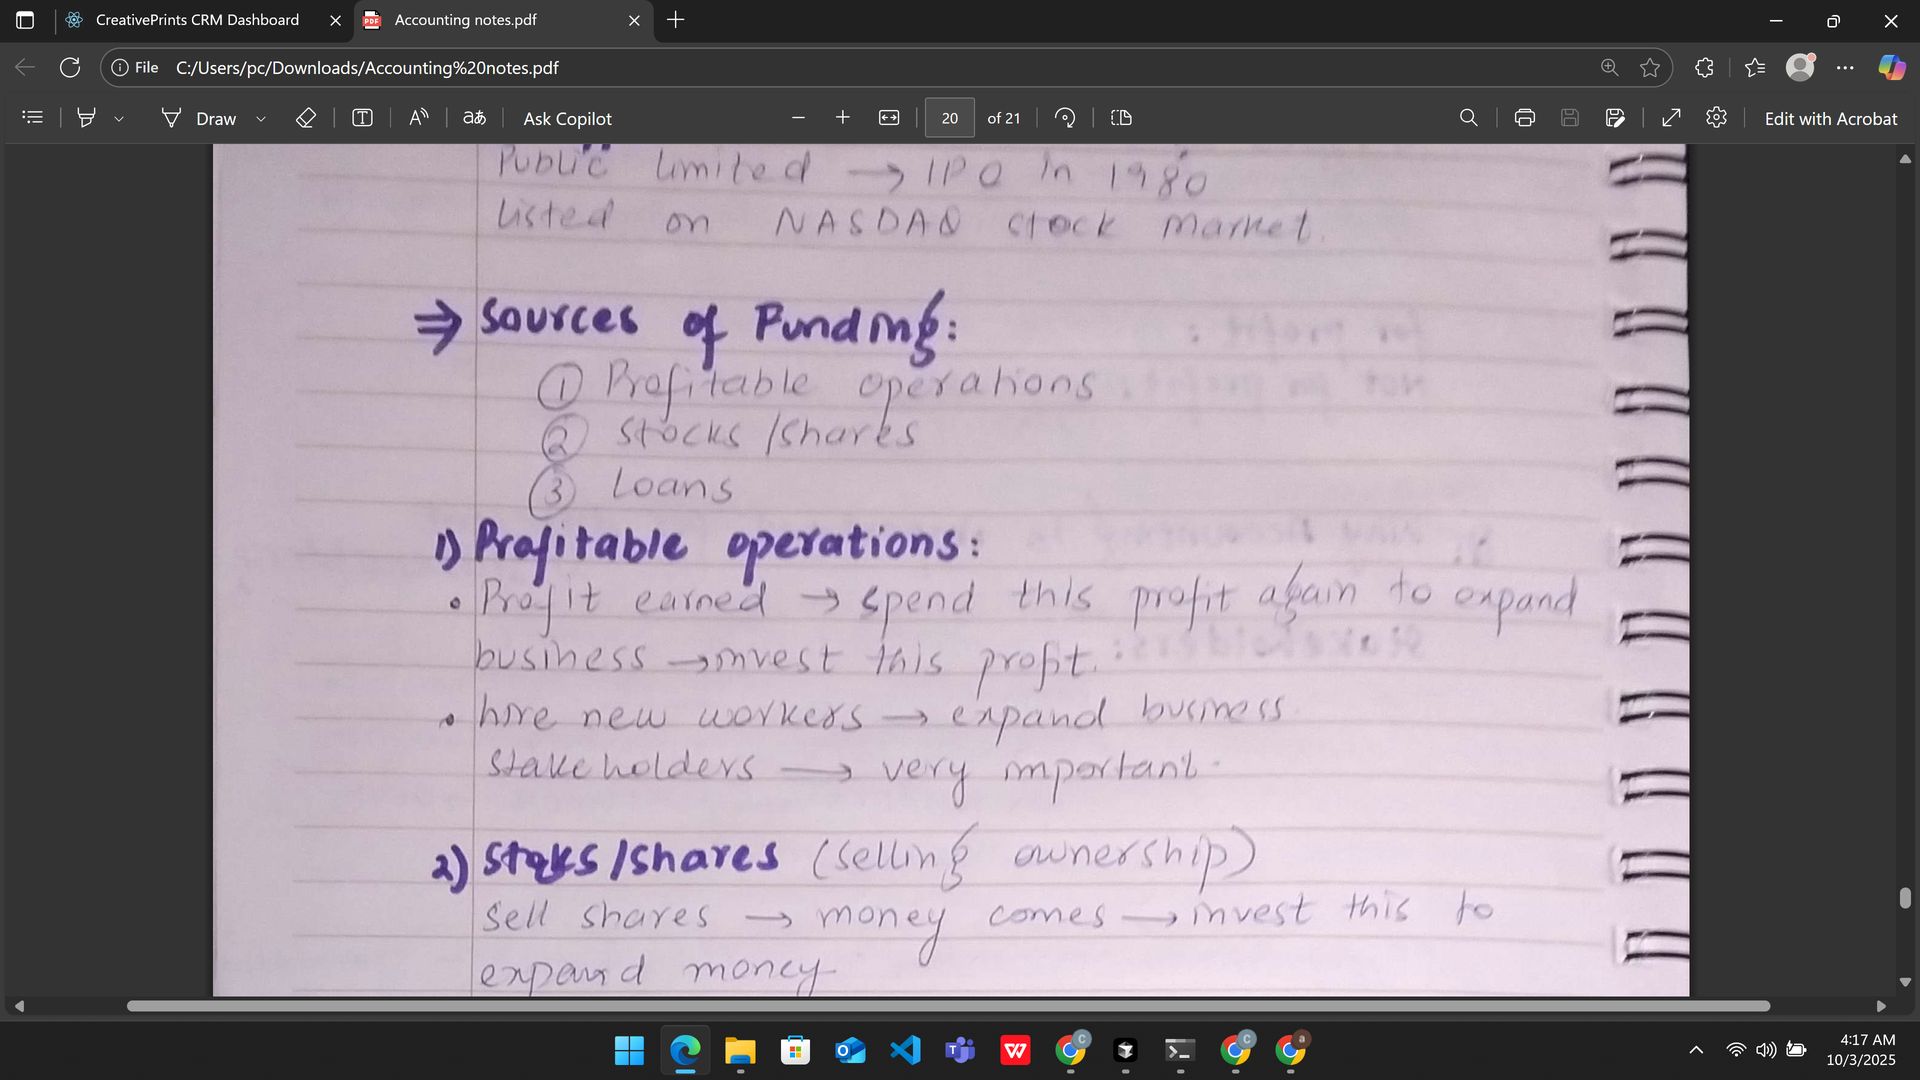 CreativePrints CRM Dashboard
Accounting notes.pdf
File C:/Users/pc/Downloads/Accounting%20notes.pdf
Draw
Ask Copilot
20 of 21
Edit with Acrobat
Public limited → IPO in 1980
listed on NASDAQ stock market.
⇒ Sources of Funding:
① Profitable operations
② stocks /shares
③ Loans
1) Profitable operations:
• Profit earned → spend this profit again to expand
business → invest this profit.
• hire new workers → expand business
stakeholders → very important.
2) Stoks/shares (selling ownership)
sell shares → money comes → invest this to
expand money
4:17 AM
10/3/2025